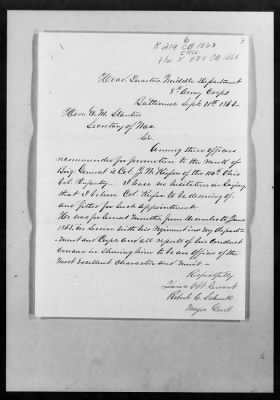 6
K 219 CB 1863
Head Quarters Middle Department
8th Army Corps
Baltimore Sept. 11th 1863.
Hon. E. M. Stanton
Secretary of War
Sir.
Among those officers
recommended for promotion to the rank of
Brig General is Col. J. W. Keifer of the 110th Ohio
Vol. Infantry. I have no hesitation in saying
that I believe Col. Keifer to be deserving of,
and fitted for such appointment.
He was for several months, from December to June
1863, in service with his Regiment in my Depart-
ment and Corps and all reports of his conduct
concur in showing him to be an officer of the
most excellent character and merit—
Respectfully
Your Obt Servant
Robt. C. Schenck
Major Genl.